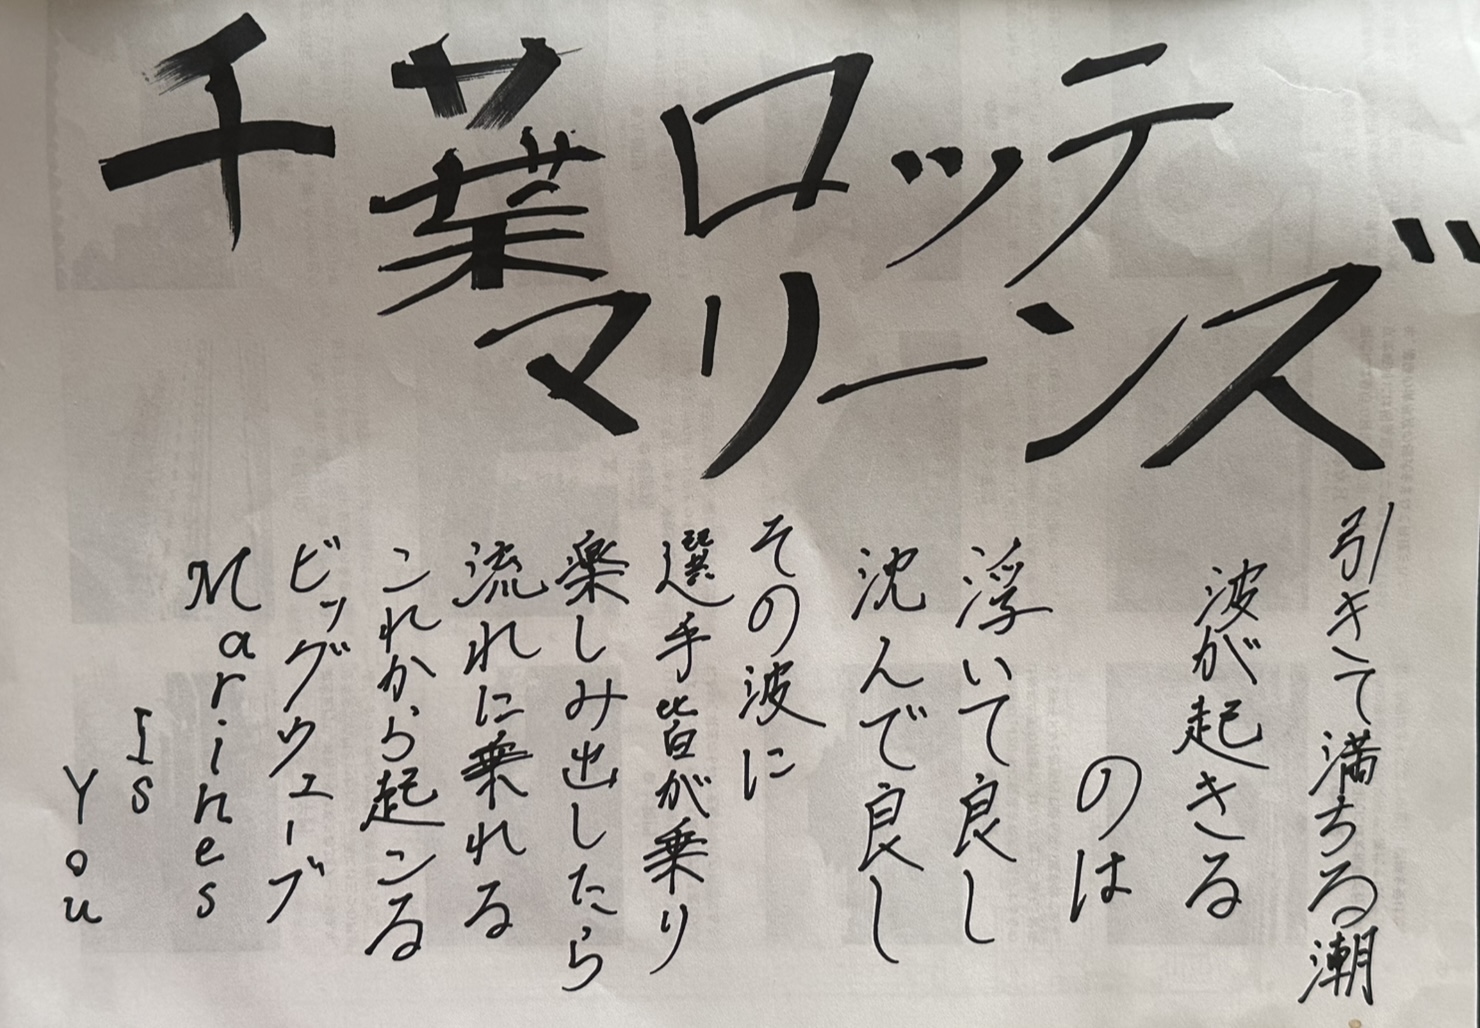 千葉ロッテ
マリーンズ
引きて満ちる潮
波が起きる
のは
浮いて良し
沈んで良し
その波に
選手皆が乗り
楽しみ出したら
流れに乗れる
これから起こる
ビッグウェーブ
Marines
Is
You